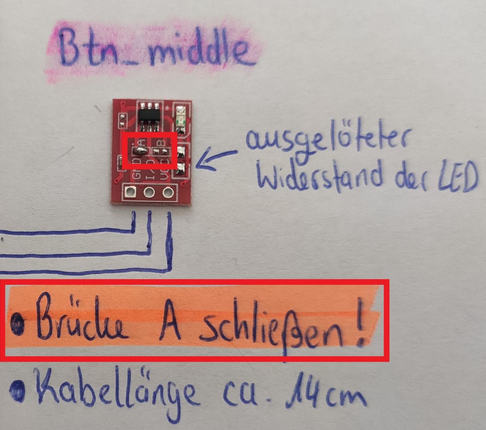 Btn_middle
A B
GND I/O VCC
ausgelöteter
Widerstand der LED
• Brücke A schließen!
• Kabellänge ca. 14cm